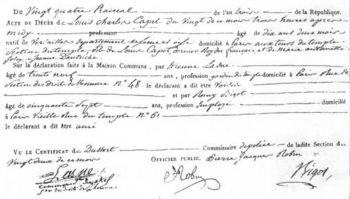 Du vingt quatre Prairial de l'an trois de la République.
ACTE DE DÉCÈS de Louis Charles Capet du vingt du mois trois heures après
midy, profession âgé de dix ans deux mois
natif de Versailles département Seine et oise domicilié à Paris aux tours du temple
Section du temple, fils de Louis Capet dernier Roy des français et de Marie antoinette
Josephe Jeanne d'autriche
Sur la déclaration faite à la Maison Commune, par Etienne Lasne
âgé de trente neuf ans, profession gardien du temple domicilié à Paris Rue
Section des droits de l'homme N° 48 le déclarant a dit être voisin
et par Remy Bigot
âgé de cinquante Sept ans, profession Employé domicilié
à Paris Vieille Rue du temple N° 61
le déclarant a dit être ami
VU LE CERTIFICAT de Dussert Commissaire de police de ladite Section du
vingt deux de ce mois OFFICIER PUBLIC. Pierre Jacques Robin
Lasne
Robin
Bigot